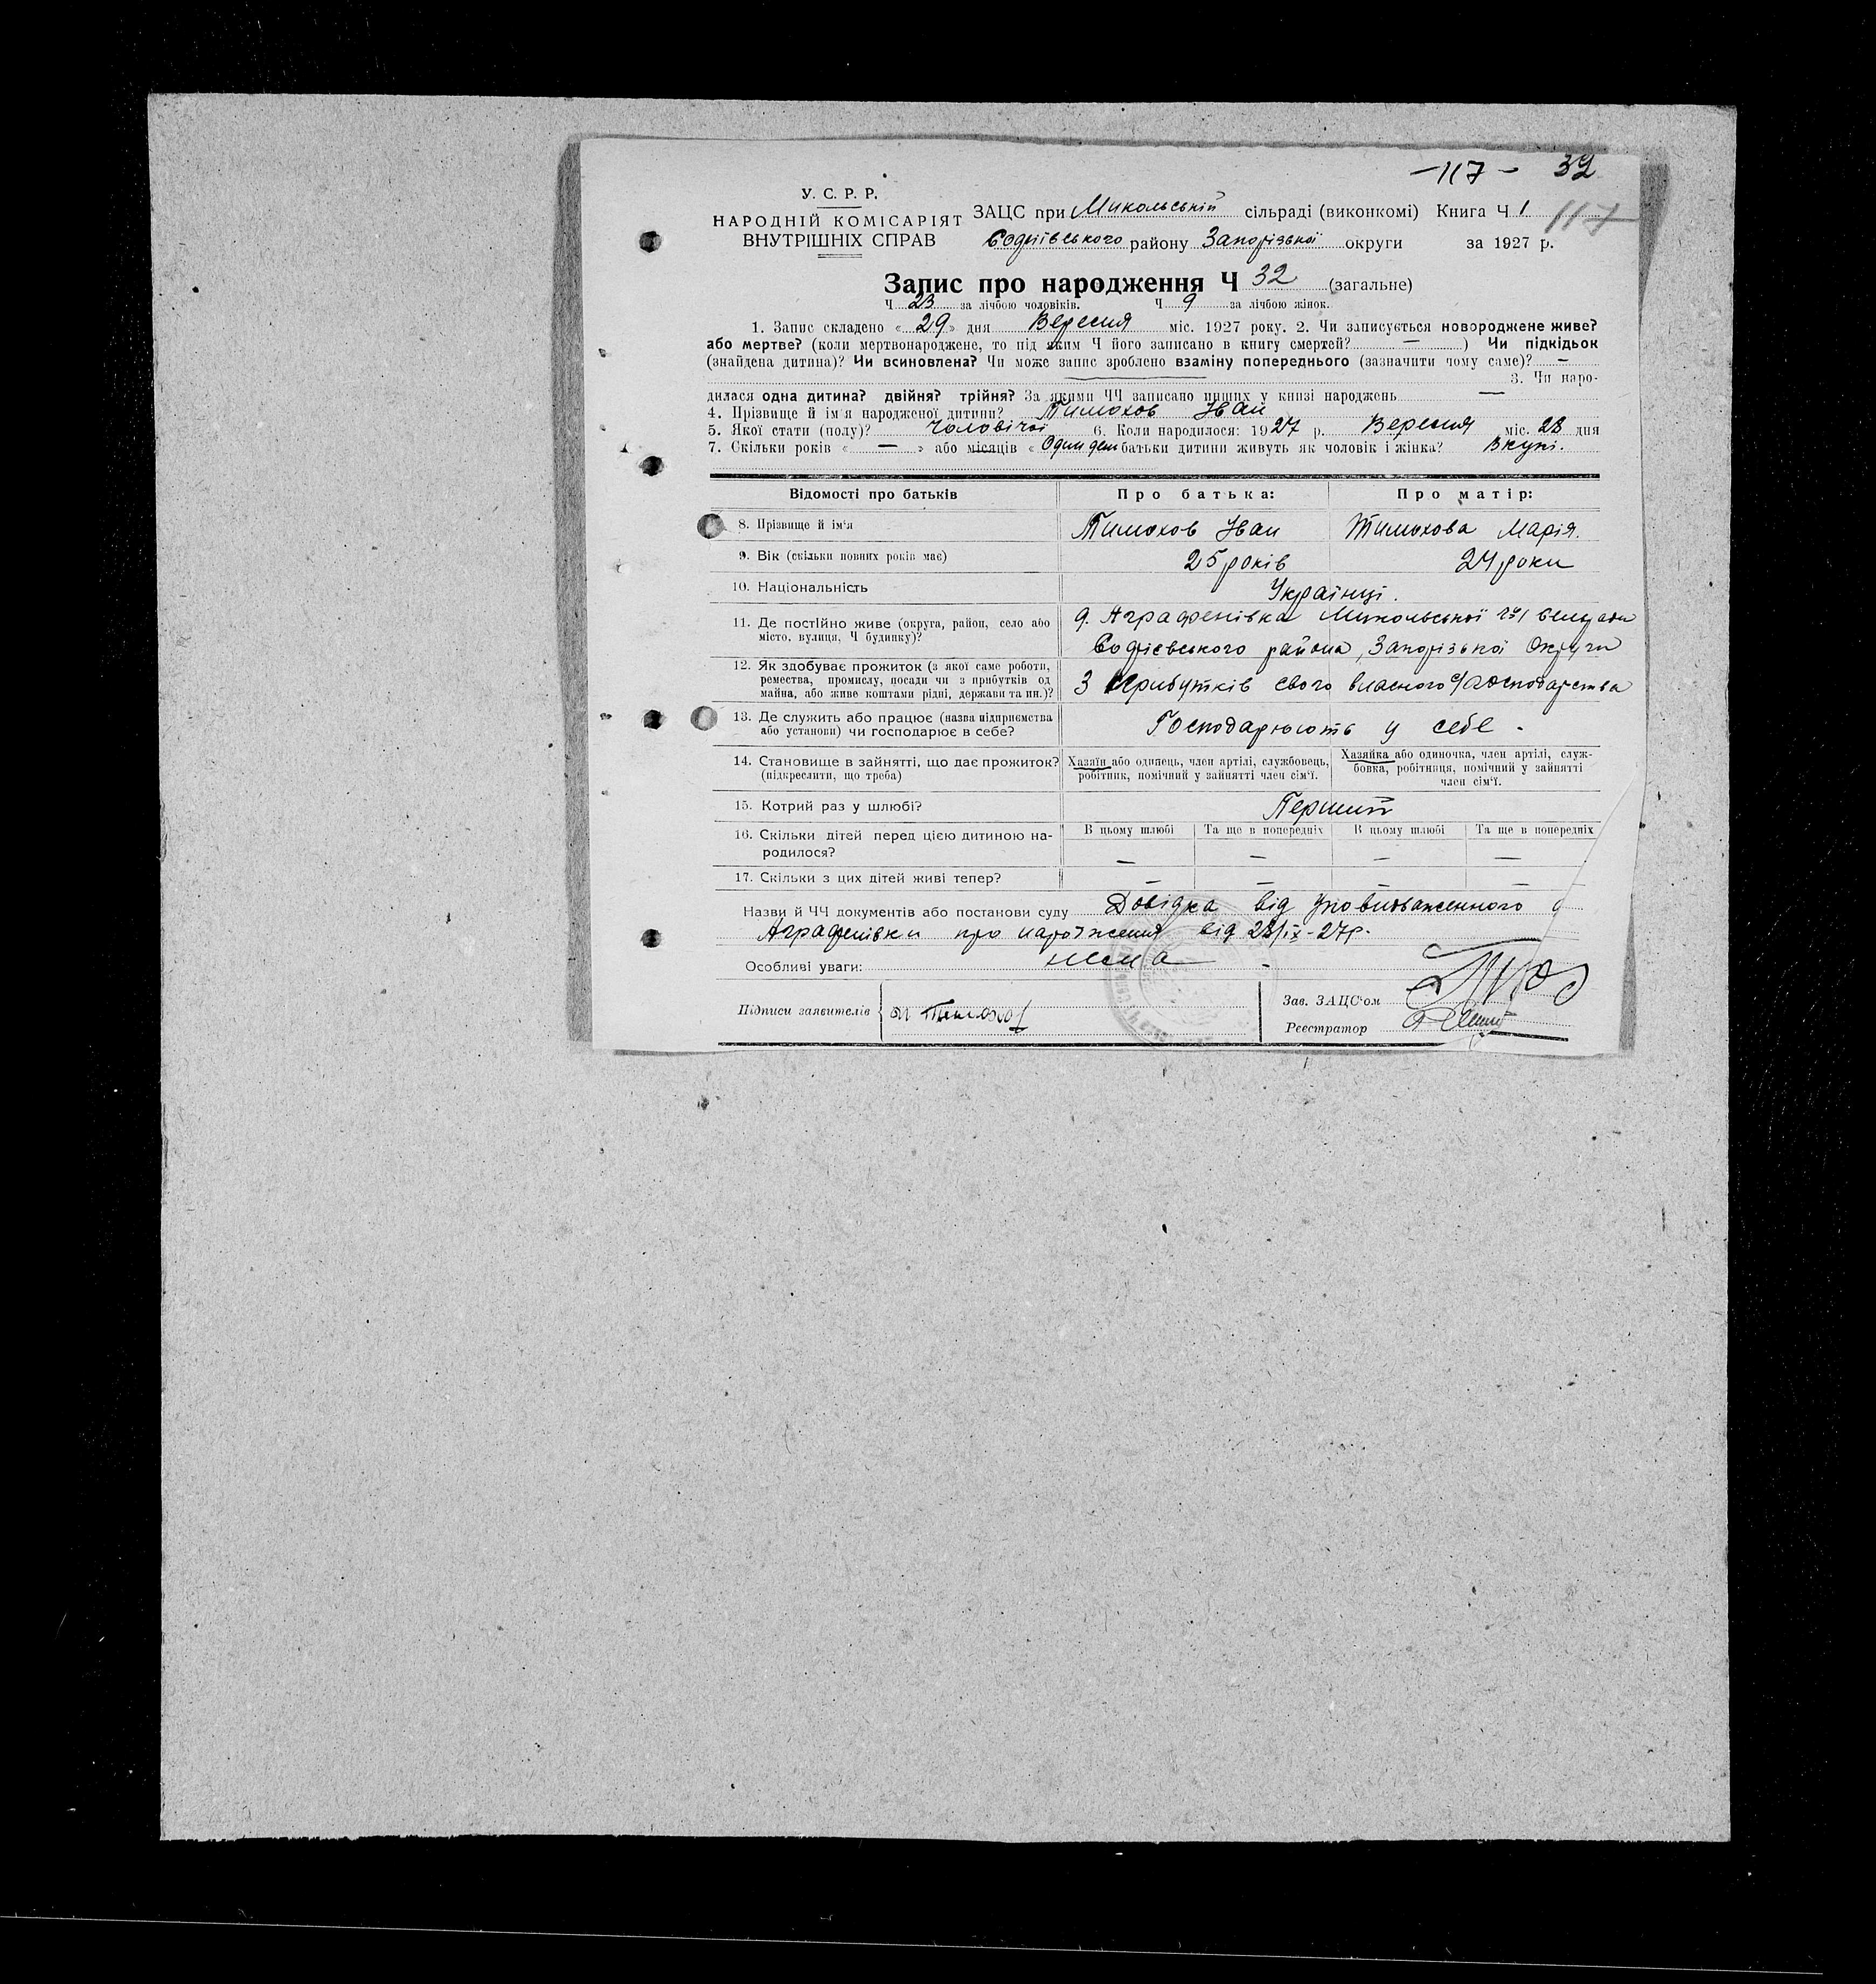 -117- 32
117
У. С. Р. Р.
НАРОДНІЙ КОМІСАРІЯТ
ВНУТРІШНІХ СПРАВ
ЗАЦС при Микольській сільраді (виконкомі) Книга Ч 1
Софіївського району Запорізької округи за 1927 р.
Запис про народження Ч 32 (загальне)
Ч 23 за лічбою чоловіків. Ч 9 за лічбою жінок.
1. Запис складено « 29 » дня Вересня міс. 1927 року. 2. Чи записується новороджене живе?
або мертве? (коли мертвонароджене, то під яким Ч його записано в книгу смертей? — ) Чи підкідьок
(знайдена дитина)? Чи всиновлена? Чи може запис зроблено взаміну попереднього (зазначити чому саме)? —
3. Чи наро-
дилася одна дитина? двійня? трійня? За якими ЧЧ записано инших у книзі народжень —
4. Прізвище й ім'я народженої дитини? Тимохов Іван
5. Якої стати (полу)? Чоловічої 6. Коли народилося: 1927 р. Вересня міс. 28 дня
7. Скільки років « — » або місяців « Один ден батьки дитини живуть як чоловік і жінка? Вкупі.
Відомості про батьків Про батька: Про матір:
8. Прізвище й ім'я Тимохов Іван Тимохова Марія.
9. Вік (скільки повних років має) 25 років 24 роки
10. Національність Українці.
11. Де постійно живе (округа, район, село або
місто, вулиця, Ч будинку)?
д. Аграфенівка Микольської
Софієвського района, Запорізької Округи
12. Як здобуває прожиток (з якої саме роботи,
ремества, промислу, посади чи з прибутків од
майна, або живе коштами рідні, держави та ин.)?
З прибутків свого власного с/господарства
13. Де служить або працює (назва підприємства
або установи) чи господарює в себе?
Господарюють у себе.
14. Становище в зайнятті, що дає прожиток?
(підкреслити, що треба)
Хазяїн або одинець, член артілі, службовець,
робітник, помічний у зайнятті член сім'ї.
Хазяйка або одиночка, член артілі, служ-
бовка, робітниця, помічний у зайнятті
член сім'ї.
15. Котрий раз у шлюбі? Перший
16. Скільки дітей перед цією дитиною на-
родилося?
В цьому шлюбі Та ще в попередніх В цьому шлюбі Та ще в попередніх
— — — —
17. Скільки з цих дітей живі тепер? — — — —
Назви й ЧЧ документів або постанови суду Довідка від Уповноваженного
Аграфенівки про народження від 28/ІХ-27р.
Особливі уваги: нема
Підписи заявителів
Зав. ЗАЦС'ом
Реєстратор